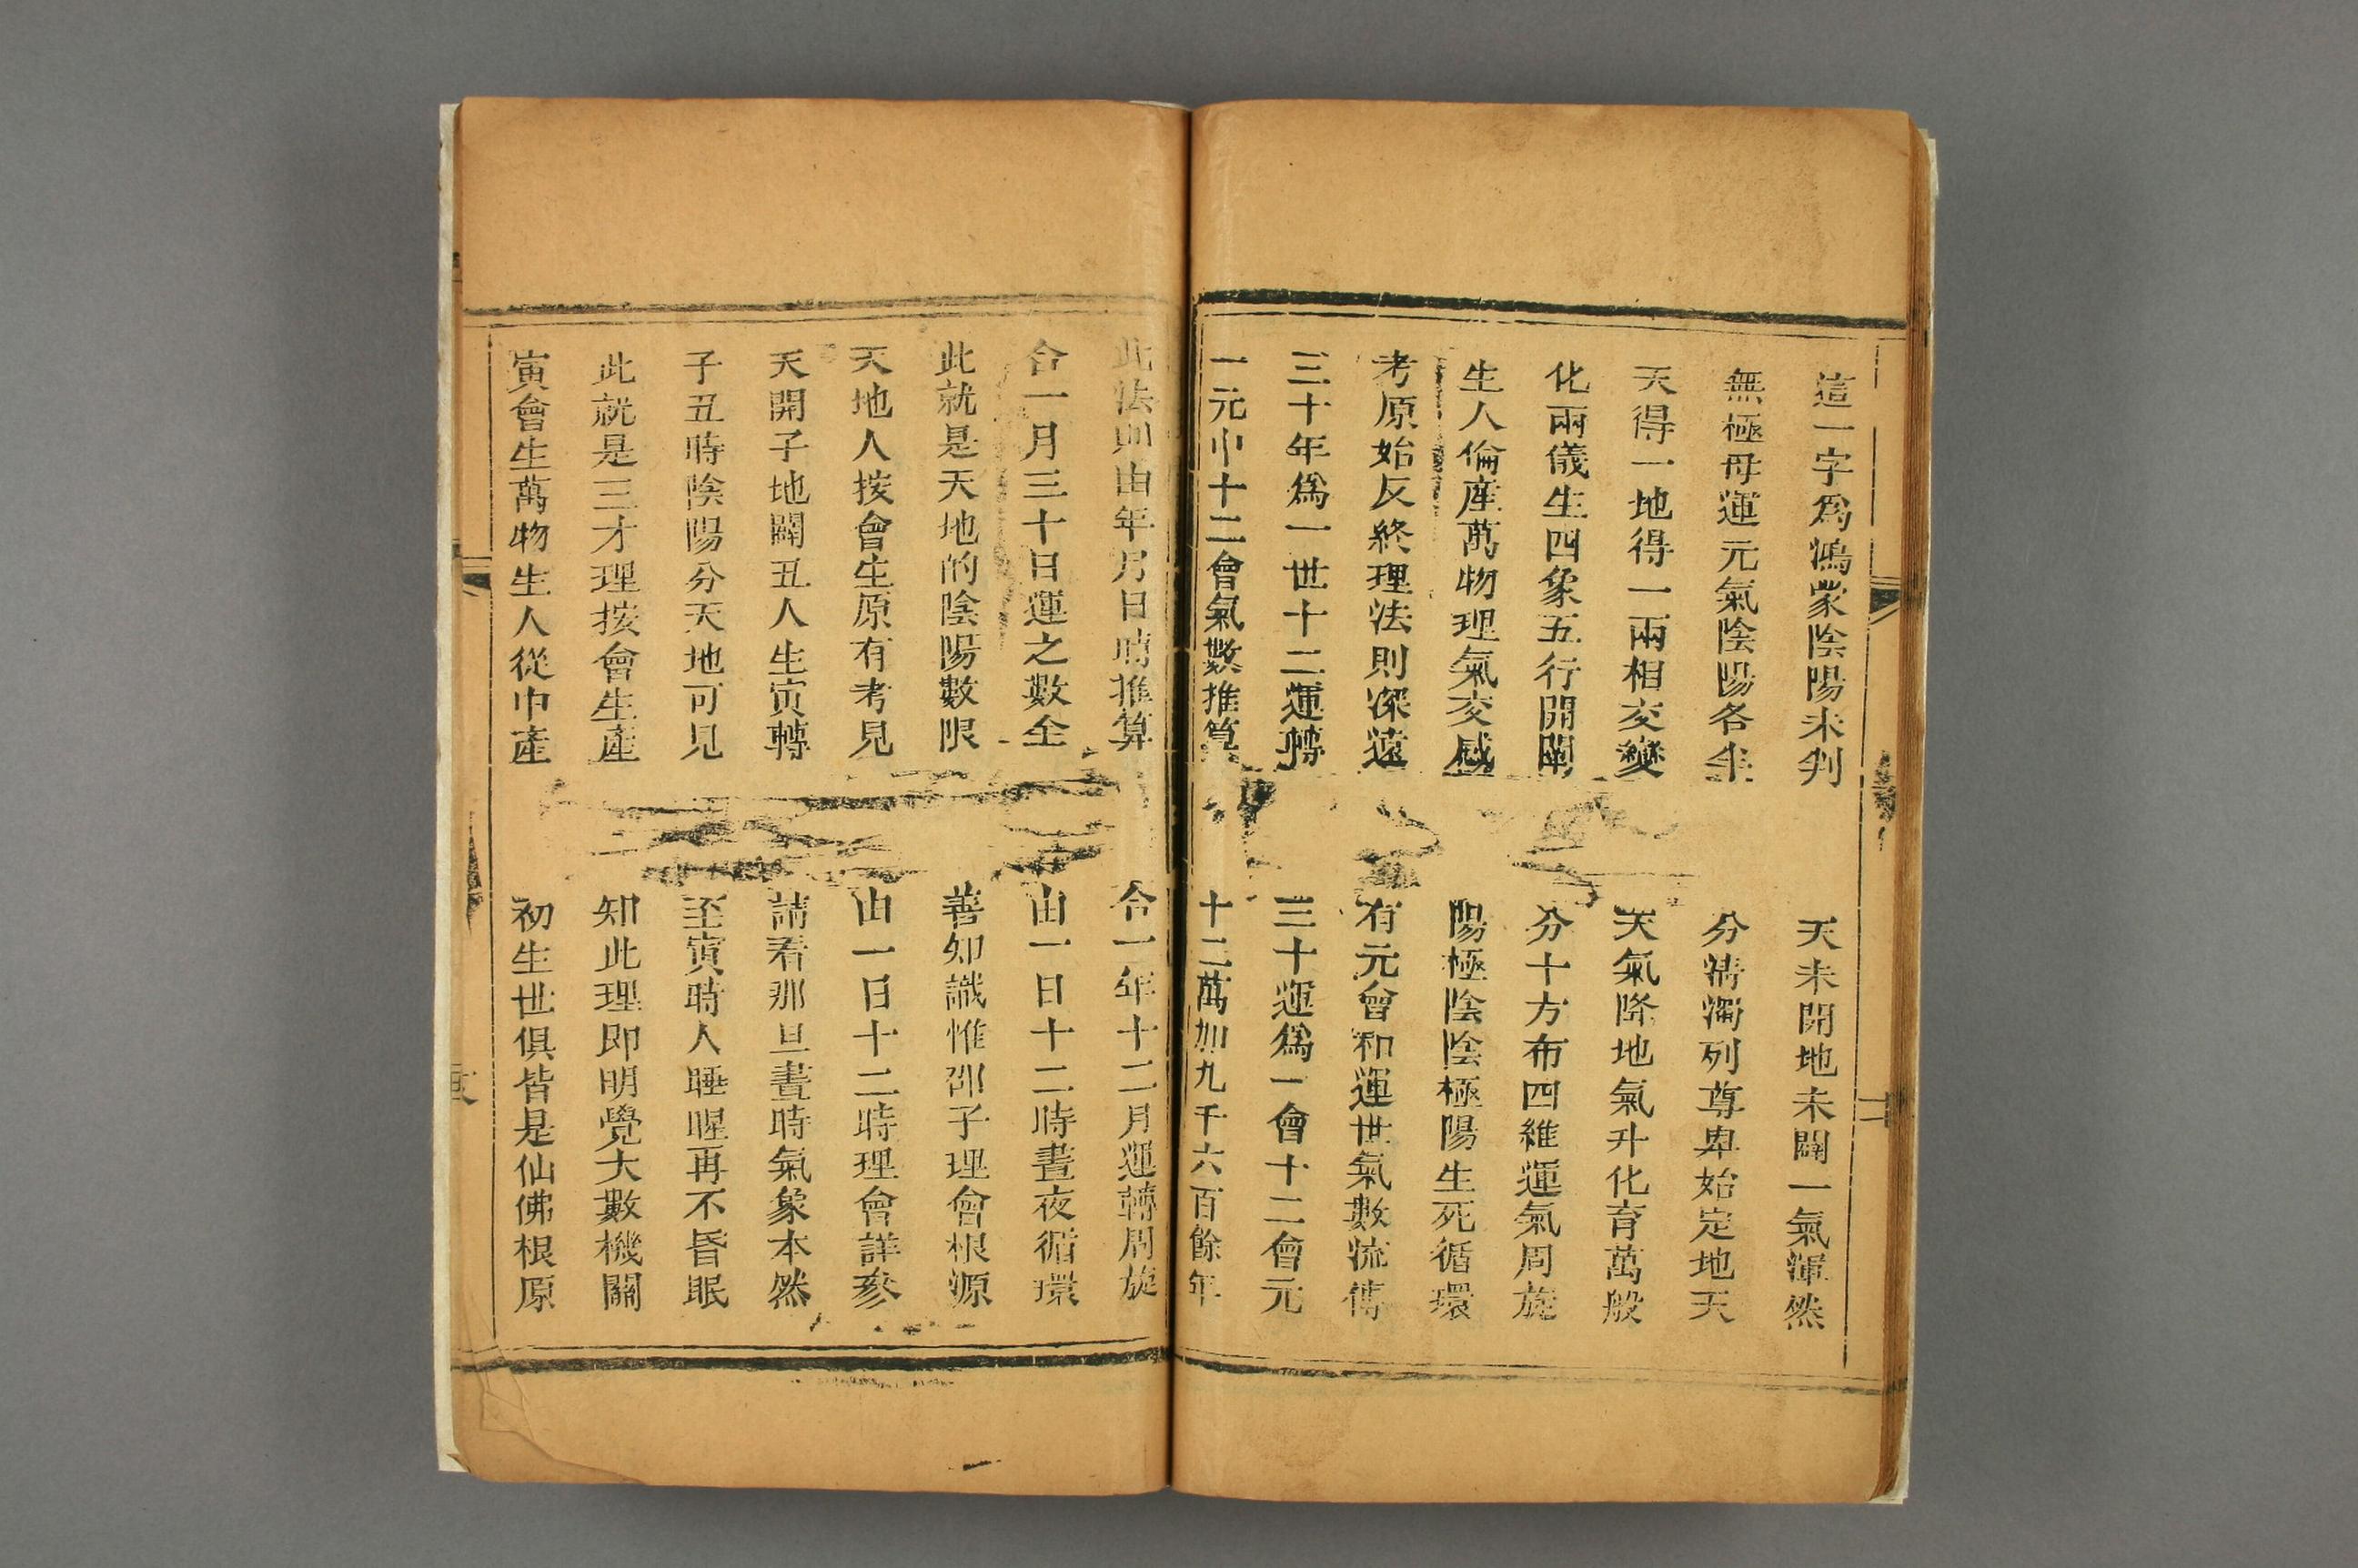 這一字爲鴻蒙陰陽未判　天未開地未闢一氣渾然
無極母運元氣陰陽各半　分淸濁列尊卑始定地天
天得一地得一兩相交變　天氣降地氣升化育萬般
化兩儀生四象五行開闢　分十方布四維運氣周旋
生人倫產萬物理氣交感　陽極陰陰極陽生死循環
考原始反終理法則深遠　有元會和運世氣數流傳
三十年爲一世十二運轉　三十運爲一會十二會元
一元中十二會氣數推算　十二萬加九千六百餘年
此法則由年月日時推算　合一年十二月運轉周旋
合一月三十日運之數全　由一日十二時晝夜循環
此就是天地的陰陽數限　善知識惟邵子理會根源
天地人按會生原有考見　由一日十二時理會詳參
天開子地闢丑人生寅轉　請看那旦晝時氣象本然
子丑時陰陽分天地可見　至寅時人睡醒再不昏眠
此就是三才理按會生產　知此理即明覺大數機關
寅會生萬物生人從中產　初生世俱皆是仙佛根原